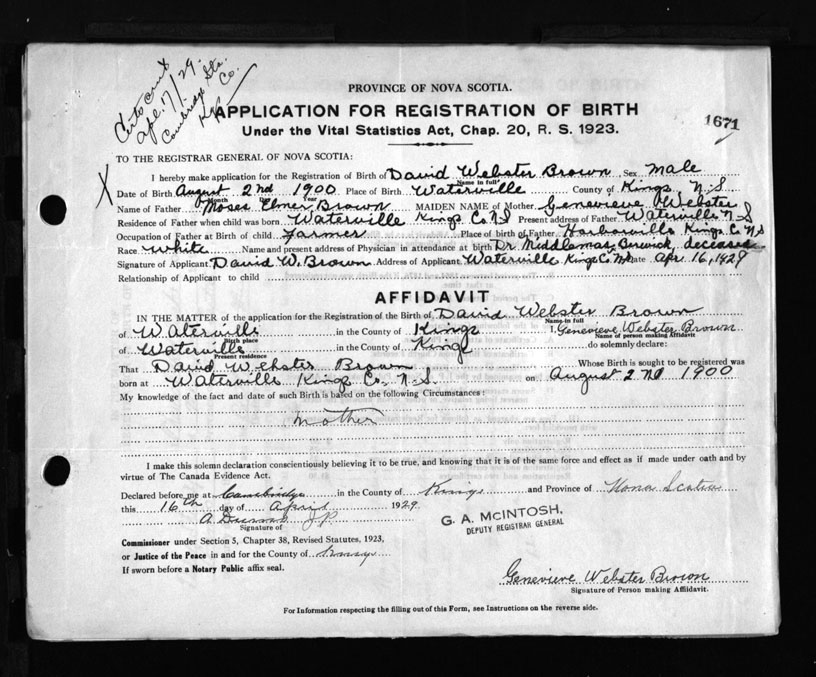 Apl. 17/29.
Cambridge Sta.
Co.
PROVINCE OF NOVA SCOTIA.
APPLICATION FOR REGISTRATION OF BIRTH
1671
Under the Vital Statistics Act, Chap. 20, R. S. 1923.
TO THE REGISTRAR GENERAL OF NOVA SCOTIA:
I hereby make application for the Registration of Birth of David Webster Brown Sex Male
Name in full
X Date of Birth August 2nd 1900 Place of Birth Waterville County of Kings, N.S
Month Day Year
Name of Father Moses Elmer Brown MAIDEN NAME of Mother Genevieve Webster
Residence of Father when child was born Waterville Kings Co NS Present address of Father Waterville N S
Occupation of Father at Birth of child farmer Place of birth of Father Harborville Kings Co N S
Race White Name and present address of Physician in attendance at birth Dr. Middlemas, Berwick, deceased
Signature of Applicant David W. Brown Address of Applicant Waterville Kings Co NS Date Apr. 16, 1429
Relationship of Applicant to child
AFFIDAVIT
IN THE MATTER of the application for the Registration of the Birth of David Webster Brown
Name in full
of Waterville in the County of Kings I, Genevieve Webster Brown
Birth place Name of person making Affidavit
of Waterville in the County of Kings do solemnly declare:
Present residence
That David Webster Brown Whose Birth is sought to be registered was
born at Waterville Kings Co. N. S. on August 2nd 1900
My knowledge of the fact and date of such Birth is based on the following Circumstances:
Mother
I make this solemn declaration conscientiously believing it to be true, and knowing that it is of the same force and effect as if made under oath and by
virtue of The Canada Evidence Act.
Declared before me at Cambridge in the County of Kings and Province of Nova Scotia
this 16th day of April 1929
A J.P.
Signature of
G. A. McINTOSH,
DEPUTY REGISTRAR GENERAL
Commissioner under Section 5, Chapter 38, Revised Statutes, 1923,
or Justice of the Peace in and for the County of Kings
If sworn before a Notary Public affix seal.
Genevieve Webster Brown
Signature of Person making Affidavit.
For Information respecting the filling out of this Form, see Instructions on the reverse side.